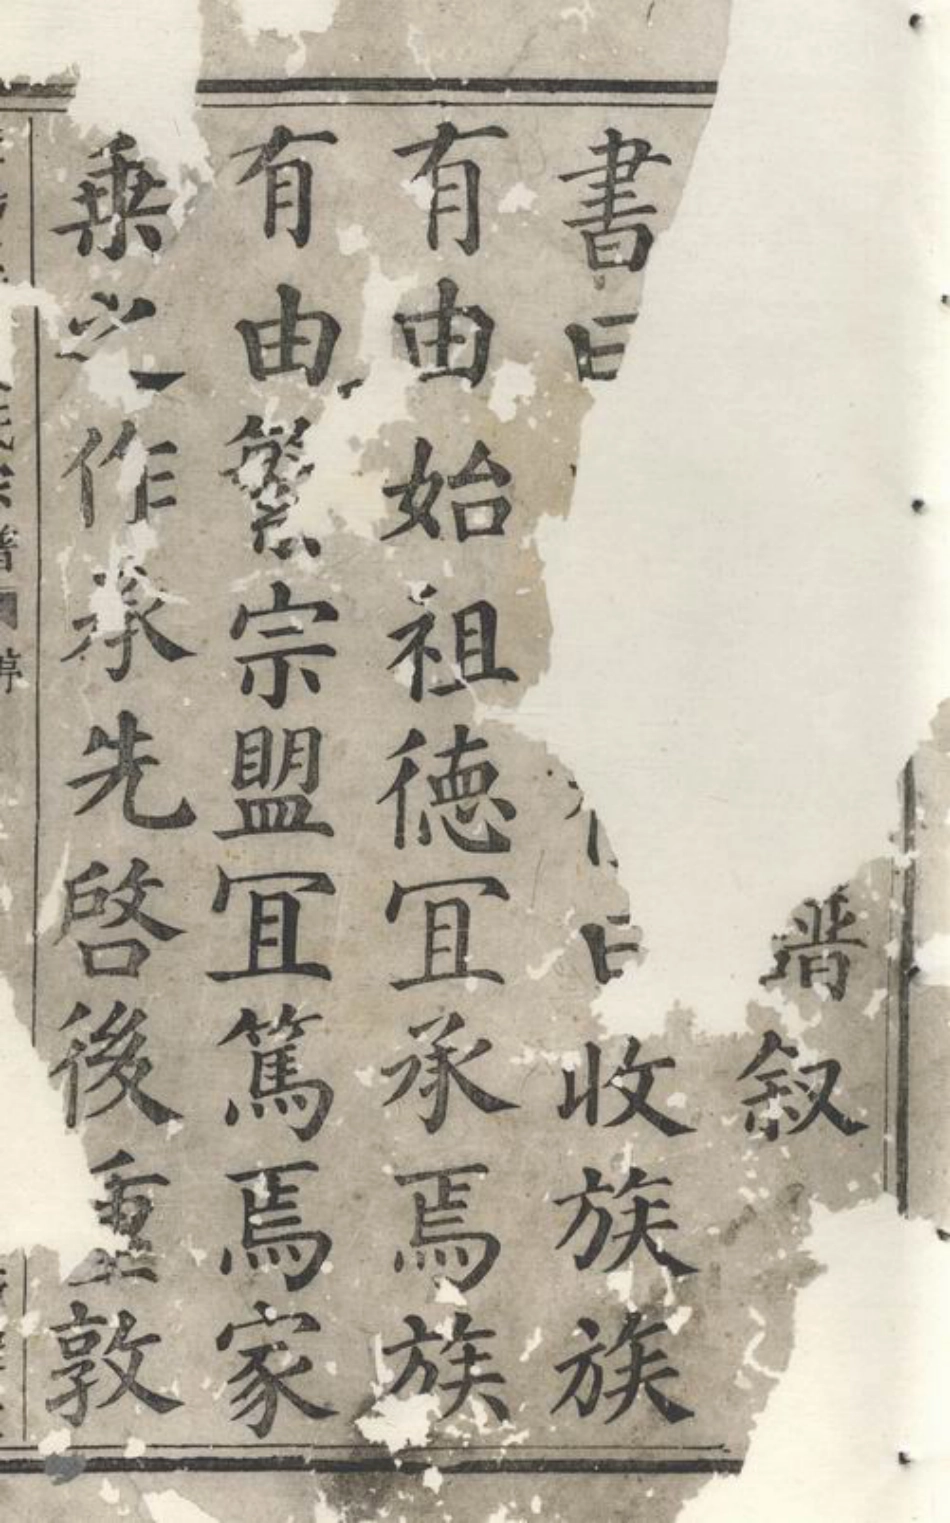 譜叙
書曰收族族
有由始祖德冝承焉族
有由繁宗盟冝篤焉家
乗之作承先啓後重敦
氏宗譜